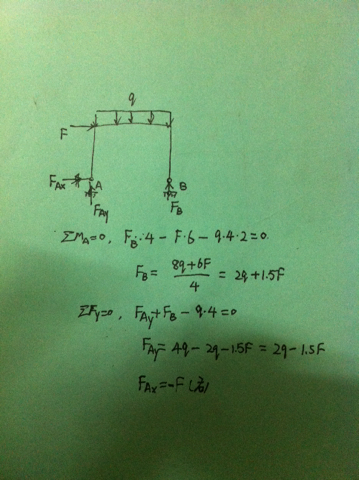 q
F
F_Ax A B
F_Ay F_B
ΣM_A=0, F_B·4 - F·6 - q·4·2=0
F_B= (8q+6F)/4 = 2q+1.5F
ΣF_y=0, F_Ay+F_B - q·4=0
F_Ay= 4q - 2q - 1.5F = 2q - 1.5F
F_Ax=-F